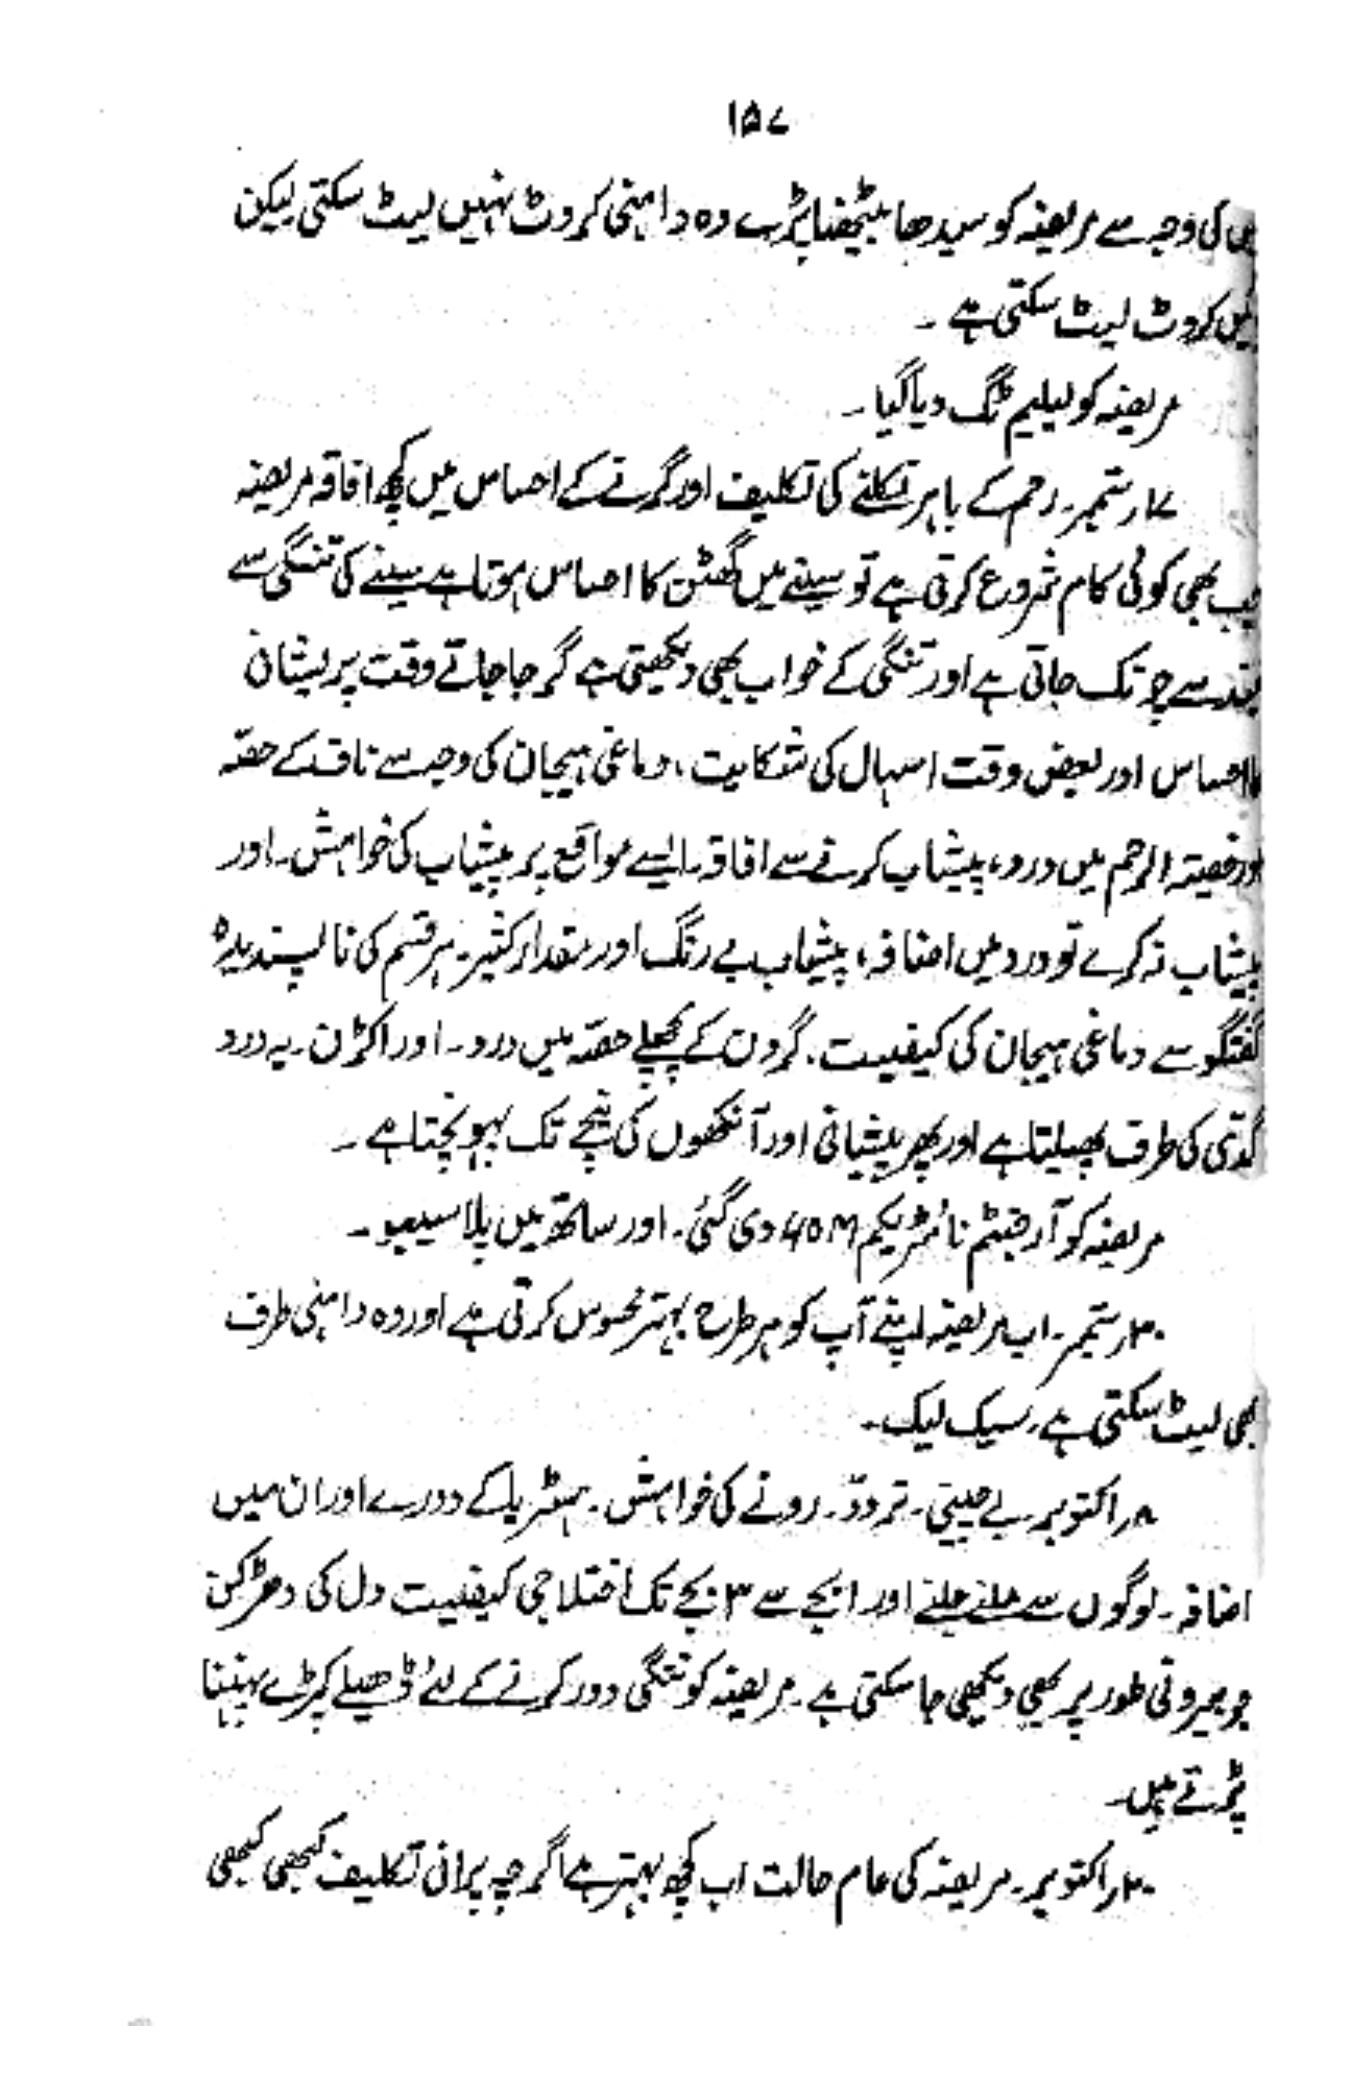 ۱۵۷
کی وجہ سے مریضہ کو سیدھا بیٹھنا پڑے وہ داہنی کروٹ نہیں لیٹ سکتی لیکن
کروٹ لیٹ سکتی ہے ۔
مریضہ کو لیلیم ٹگ دیا گیا ۔
۱۷ ستمبر۔ رحم کے باہر نکلنے کی تکلیف اور گرنے کے احساس میں کچھ افاقہ مریضہ
جب بھی کوئی کام شروع کرتی ہے تو سینے میں گھٹن کا احساس ہوتا ہے سینے کی تنگی سے
نیند سے چونک جاتی ہے اور تنگی کے خواب بھی دیکھتی ہے گرجا جاتے وقت پریشانی
کا احساس اور بعض وقت اسہال کی شکایت، دماغی ہیجان کی وجہ سے ناف کے حصّہ
اور خصیتہ الرحم میں درد، پیشاب کرنے سے افاقہ۔ ایسے مواقع پر پیشاب کی خواہش۔ اور
پیشاب نہ کرے تو درد میں اضافہ، پیشاب بے رنگ اور مقدار کثیر۔ ہر قسم کی ناپسندیدہ
گفتگو سے دماغی ہیجان کی کیفیت۔ گردن کے پچھلے حصّہ میں درد۔ اور اکڑن۔ یہ درد
گدّی کی طرف پھیلتا ہے اور پھر پیشانی اور آنکھوں کی نیچے تک پہونچتا ہے ۔
مریضہ کو آرجنٹم نائٹریکم دی گئی۔ اور ساتھ میں پلاسیبو ۔
۳۰ ستمبر۔ اب مریضہ اپنے آپ کو ہر طرح بہتر محسوس کرتی ہے اور وہ داہنی طرف
بھی لیٹ سکتی ہے۔ سیک لیک۔
۸ اکتوبر بے چینی۔ تردّد۔ رونے کی خواہش۔ ہسٹریا کے دورے اور ان میں
اضافہ۔ لوگوں سے ملنے جلنے اور ۱ بجے سے ۳ بجے تک اختلاجی کیفیت دل کی دھڑکن
جو بیرونی طور پر بھی دیکھی جا سکتی ہے۔ مریضہ کو تنگی دور کرنے کے لئے ڈھیلے کپڑے پہننا
پڑتے ہیں۔
۲۰ اکتوبر۔ مریضہ کی عام حالت اب کچھ بہتر ہے اگرچہ پرانی تکلیف کبھی کبھی